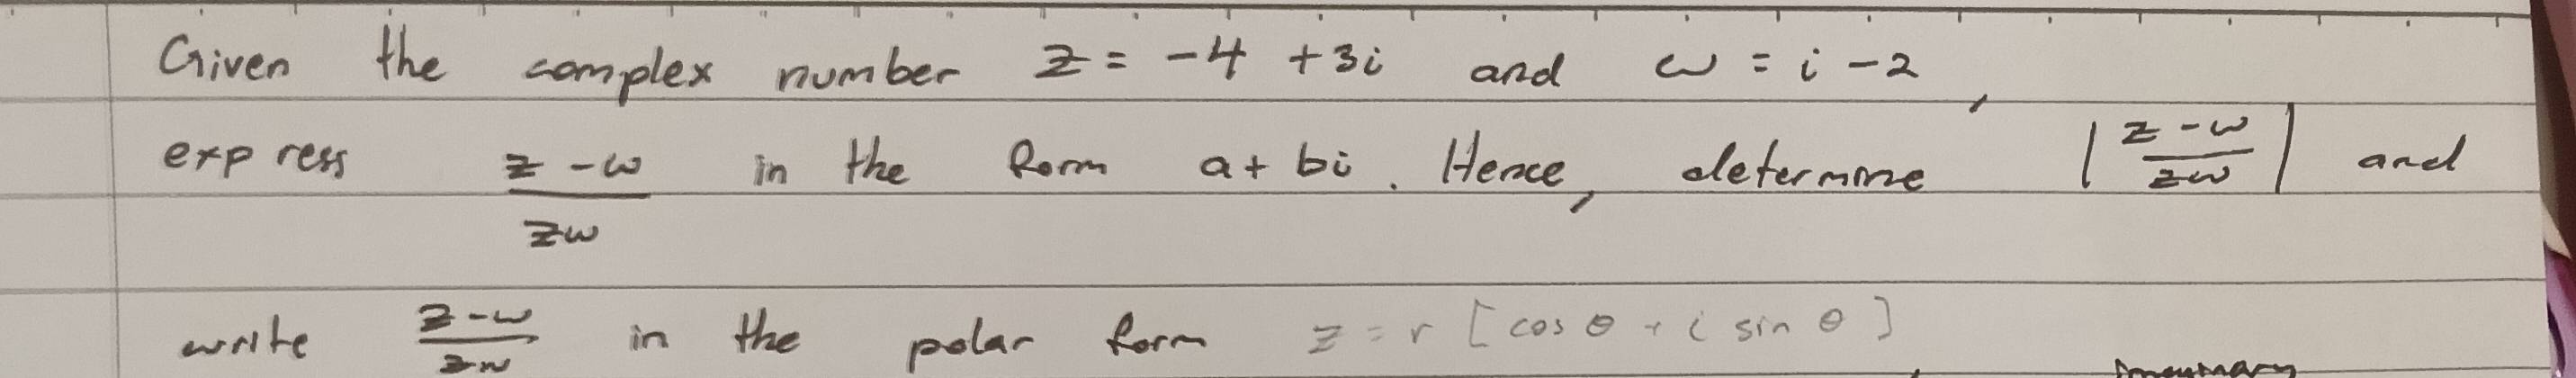 Given the complex number z = -4 + 3i and ω = i - 2,
express z - ω / zω in the form a + bi. Hence, determine | z - ω / zω | and
write z - ω / zω in the polar form z = r [cos θ + i sin θ]
imaginary